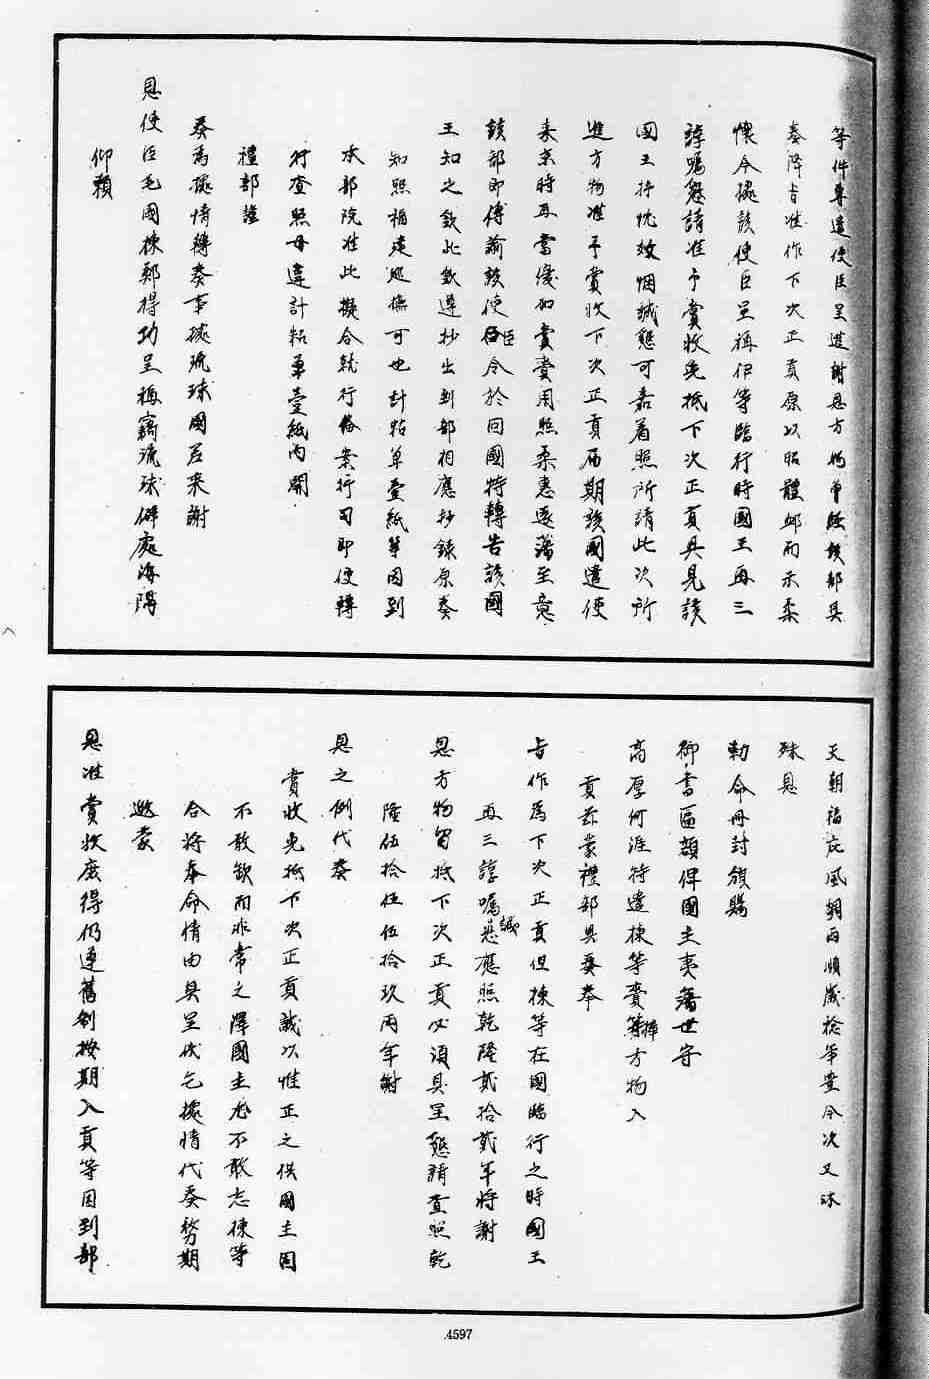 等件專遣使臣呈進謝恩方物曾經該部具
奏降旨准作下次正貢原以昭體卹而示柔
懷今據該使臣呈稱伊等臨行時國王再三
諄囑懇請准予賞收免抵下次正貢具見該
國王抒忱效悃誠懇可嘉着照所請此次所
進方物准予賞收下次正貢屆期該國遣使
來京時再當優加賞賚用照柔惠遠藩至意
該部即傳諭該使臣令於回國時轉告該國
王知之欽此欽遵抄出到部相應抄錄原奏
知照福建巡撫可也計粘單壹紙等因到
本部院准此擬合就行備案行司即便轉
行查照毋違計粘單壹紙內開
禮部謹
奏為據情轉奏事據琉球國差來謝
恩使臣毛國棟鄭得功呈稱竊琉球僻處海隅
仰賴
天朝福庇風調雨順歲稔年豐今次又沐
殊恩
勅命冊封頒賜
御書匾額俾國主夷藩世守
高厚何涯特遣棟等賫捧方物入
貢茲蒙禮部具奏奉
旨作為下次正貢但棟等在國臨行之時國王
再三諄囑懇誠應照乾隆貳拾貳年將謝
恩方物留抵下次正貢必須具呈懇請查照乾
隆伍拾伍伍拾玖兩年謝
恩之例代奏
賞收免抵下次正貢誠以惟正之供國主固
不敢缺而非常之澤國主尤不敢忘棟等
合將奉命情由具呈伏乞據情代奏務期
邀蒙
恩准賞收庶得仍遵舊例按期入貢等因到部
4597